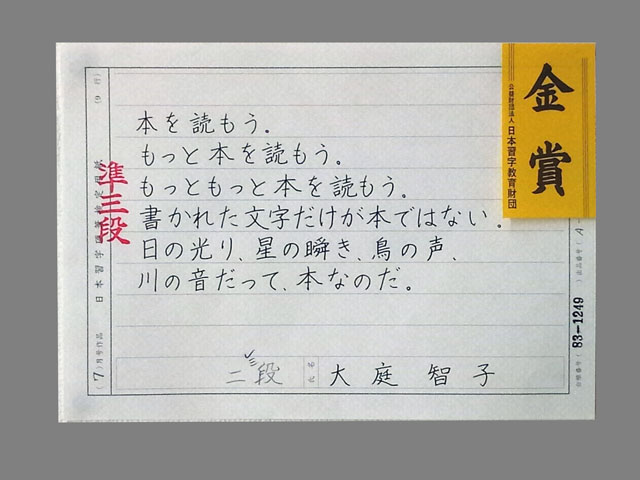 金賞
公益財団法人 日本習字教育財団
本を読もう。
もっと本を読もう。
もっともっと本を読もう。
書かれた文字だけが本ではない。
日の光り、星の瞬き、鳥の声、
川の音だって、本なのだ。
準三段
二段
氏名
大庭智子
(7)月号作品 日本習字
(9行)
出品番号(A-
会員番号(83-1249